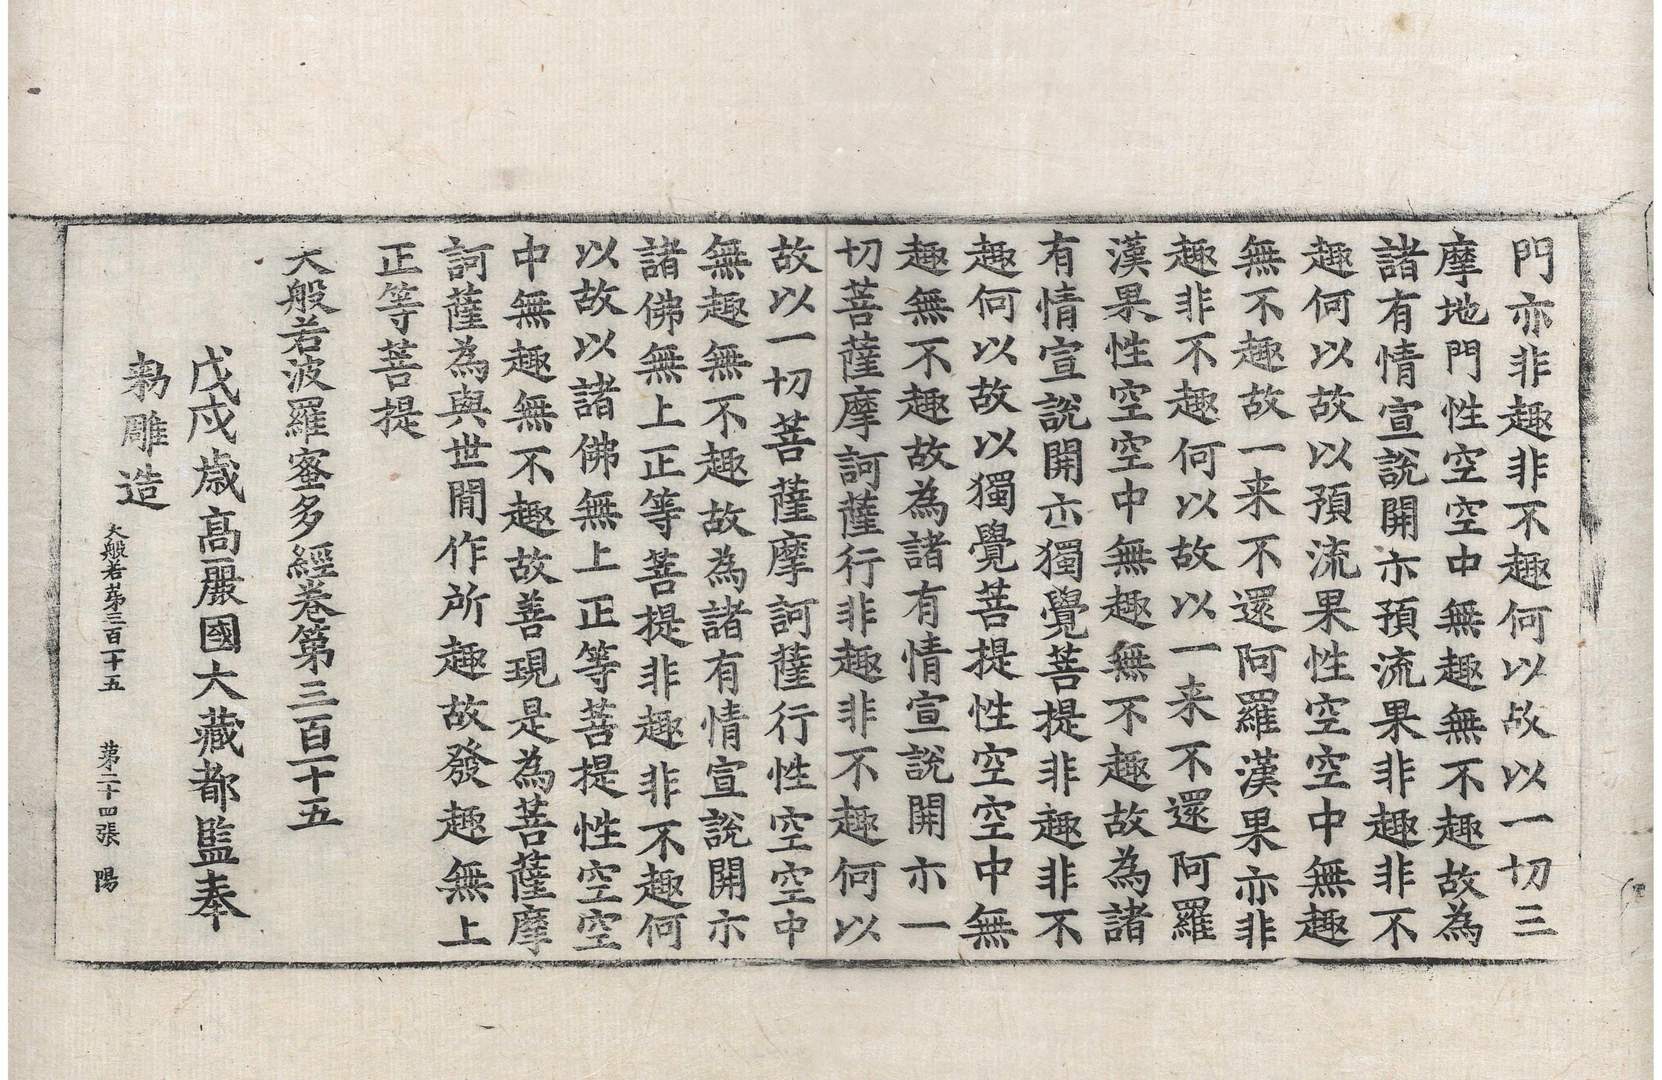 門亦非趣非不趣何以故以一切三
摩地門性空空中無趣無不趣故為
諸有情宣說開示預流果非趣非不
趣何以故以預流果性空空中無趣
無不趣故一来不還阿羅漢果亦非
趣非不趣何以故以一来不還阿羅
漢果性空空中無趣無不趣故為諸
有情宣說開示獨覺菩提非趣非不
趣何以故以獨覺菩提性空空中無
趣無不趣故為諸有情宣說開示一
切菩薩摩訶薩行非趣非不趣何以
故以一切菩薩摩訶薩行性空空中
無趣無不趣故為諸有情宣說開示
諸佛無上正等菩提非趣非不趣何
以故以諸佛無上正等菩提性空空
中無趣無不趣故善現是為菩薩摩
訶薩為與世間作所趣故發趣無上
正等菩提
大般若波羅蜜多經卷第三百一十五
戊戌歲高麗國大藏都監奉
勑雕造
大般若苐三百一十五 苐二十四張 陽